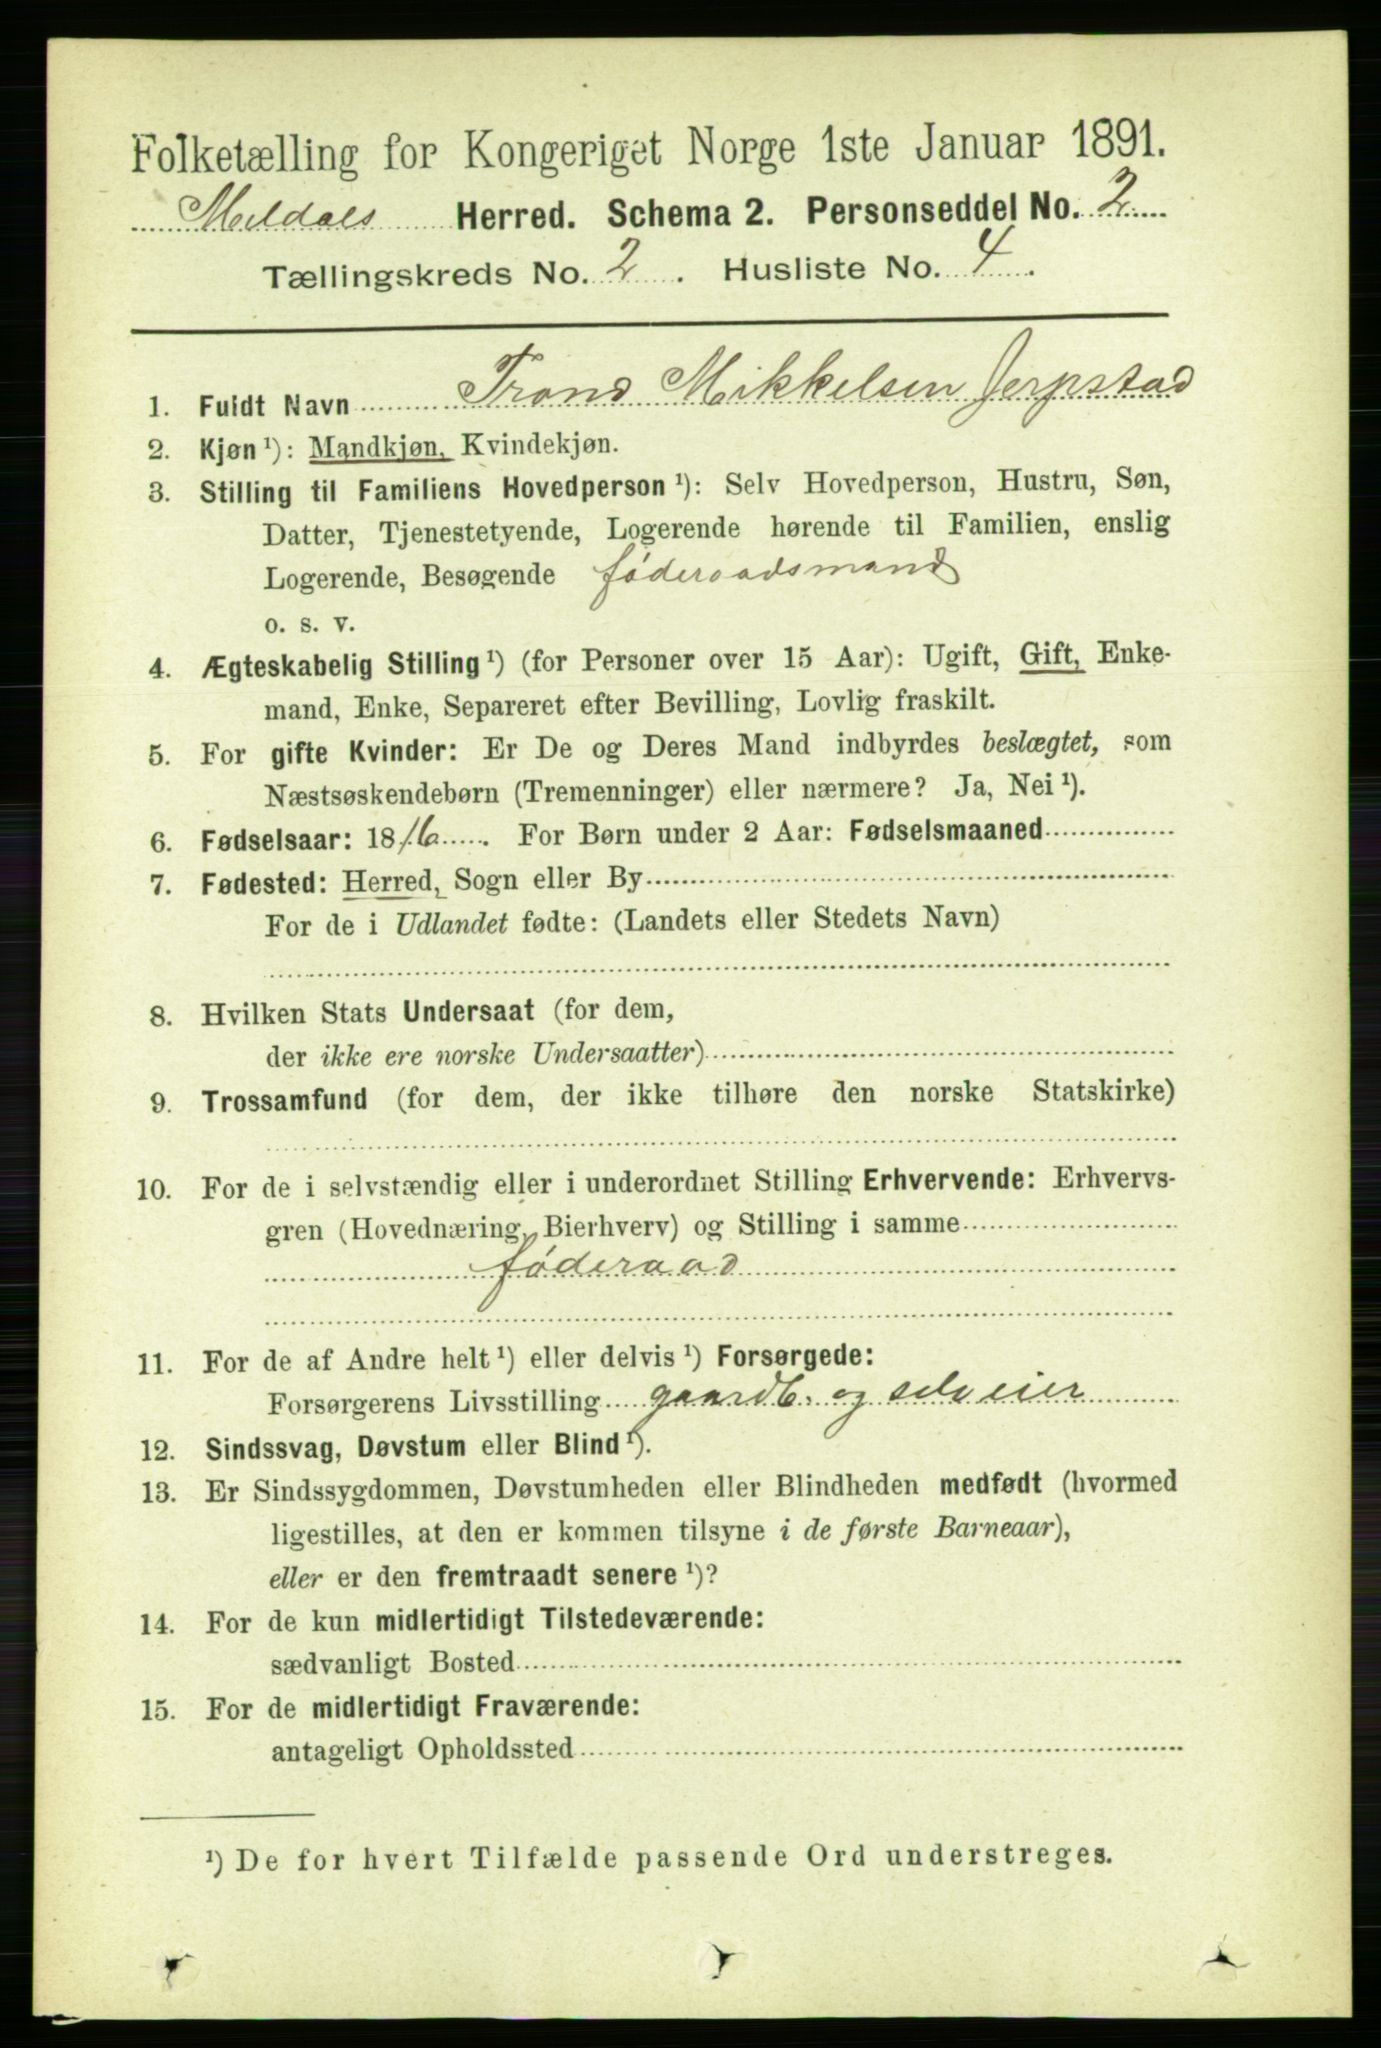 Folketælling for Kongeriget Norge 1ste Januar 1891.
Meldals Herred. Schema 2. Personseddel No. 2
Tællingskreds No. 2. Husliste No. 4.
1. Fuldt Navn Trond Mikkelsen Jerpstad
2. Kjøn ¹): Mandkjøn, Kvindekjøn.
3. Stilling til Familiens Hovedperson ¹): Selv Hovedperson, Hustru, Søn,
Datter, Tjenestetyende, Logerende hørende til Familien, enslig
Logerende, Besøgende føderaadsmand
o. s. v.
4. Ægteskabelig Stilling ¹) (for Personer over 15 Aar): Ugift, Gift, Enke-
mand, Enke, Separeret efter Bevilling, Lovlig fraskilt.
5. For gifte Kvinder: Er De og Deres Mand indbyrdes beslægtet, som
Næstsøskendebørn (Tremenninger) eller nærmere? Ja, Nei ¹).
6. Fødselsaar: 1816. For Børn under 2 Aar: Fødselsmaaned
7. Fødested: Herred, Sogn eller By
For de i Udlandet fødte: (Landets eller Stedets Navn)
8. Hvilken Stats Undersaat (for dem,
der ikke ere norske Undersaatter)
9. Trossamfund (for dem, der ikke tilhøre den norske Statskirke)
10. For de i selvstændig eller i underordnet Stilling Erhvervende: Erhvervs-
gren (Hovednæring, Bierhverv) og Stilling i samme
føderaad
11. For de af Andre helt ¹) eller delvis ¹) Forsørgede:
Forsørgerens Livsstilling gaardb. og selveier
12. Sindssvag, Døvstum eller Blind ¹).
13. Er Sindssygdommen, Døvstumheden eller Blindheden medfødt (hvormed
ligestilles, at den er kommen tilsyne i de første Barneaar),
eller er den fremtraadt senere ¹)?
14. For de kun midlertidigt Tilstedeværende:
sædvanligt Bosted
15. For de midlertidigt Fraværende:
antageligt Opholdssted
¹) De for hvert Tilfælde passende Ord understreges.